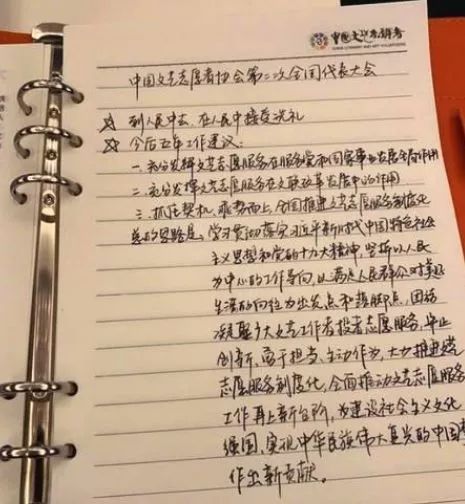 中国文艺志愿者
CHINA LITERARY AND ART VOLUNTEERS
中国文艺志愿者协会第二次全国代表大会
☆ 到人民中去、在人民中接受洗礼
☆ 今后五年工作建议:
一、充分发挥文艺志愿服务在服务党和国家事业发展全局作用
二、充分发挥文艺志愿服务在文联改革发展中的作用
三、抓住契机、乘势而上,全面推进文艺志愿服务制度化
总的思路是:学习贯彻落实习近平新时代中国特色社会
主义思想和党的十九大精神,坚持以人民
为中心的工作导向,以满足人民群众对美好
生活的向往为出发点和落脚点,团结
凝聚广大文艺工作者投身志愿服务,
创新、勇于担当、主动作为,大力推进文艺
志愿服务制度化,全面推动文艺志愿服务
工作再上新台阶,为建设社会主义文化
强国、实现中华民族伟大复兴的中国梦
作出新贡献。